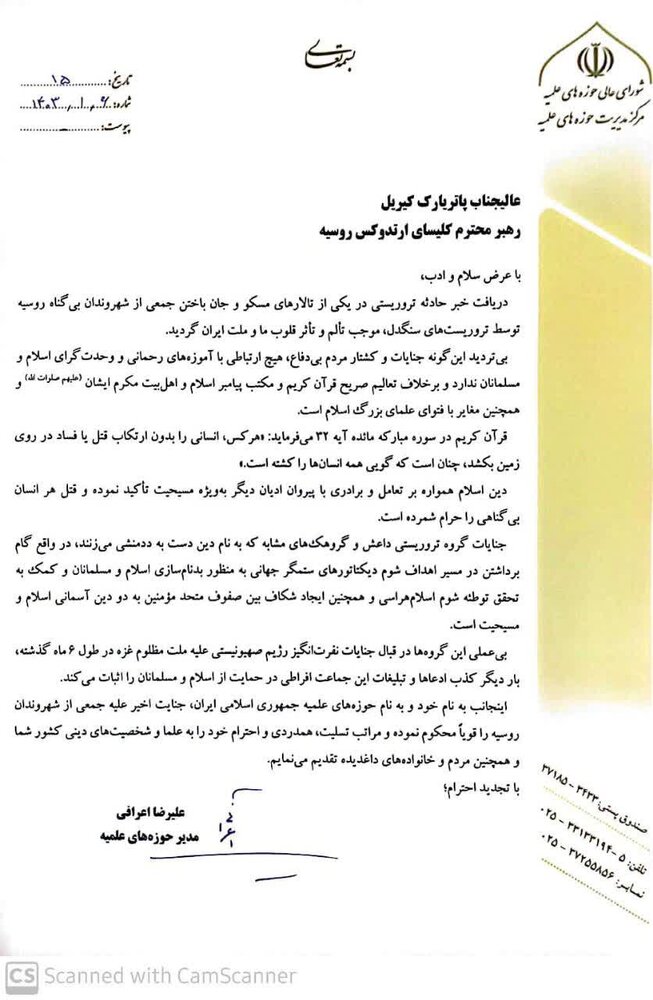 بسمه تعالی
شورای عالی حوزه های علمیه
مرکز مدیریت حوزه های علمیه
تاریخ: ۱۵
شماره: ۱۴۰۳/۱/۶
پیوست: ــ
عالیجناب پاتریارک کیریل
رهبر محترم کلیسای ارتدوکس روسیه
با عرض سلام و ادب،
دریافت خبر حادثه تروریستی در یکی از تالارهای مسکو و جان باختن جمعی از شهروندان بی‌گناه روسیه
توسط تروریست‌های سنگدل، موجب تألم و تأثر قلوب ما و ملت ایران گردید.
بی‌تردید این‌گونه جنایات و کشتار مردم بی‌دفاع، هیچ ارتباطی با آموزه‌های رحمانی و وحدت‌گرای اسلام و
مسلمانان ندارد و برخلاف تعالیم صریح قرآن کریم و مکتب پیامبر اسلام و اهل‌بیت مکرم ایشان (علیهم صلوات الله) و
همچنین مغایر با فتوای علمای بزرگ اسلام است.
قرآن کریم در سوره مبارکه مائده آیه ۳۲ می‌فرماید: «هرکس، انسانی را بدون ارتکاب قتل یا فساد در روی
زمین بکشد، چنان است که گویی همه انسان‌ها را کشته است.»
دین اسلام همواره بر تعامل و برادری با پیروان ادیان دیگر به‌ویژه مسیحیت تأکید نموده و قتل هر انسان
بی‌گناهی را حرام شمرده است.
جنایات گروه تروریستی داعش و گروهک‌های مشابه که به نام دین دست به ددمنشی می‌زنند، در واقع گام
برداشتن در مسیر اهداف شوم دیکتاتورهای ستمگر جهانی به منظور بدنام‌سازی اسلام و مسلمانان و کمک به
تحقق توطئه شوم اسلام‌هراسی و همچنین ایجاد شکاف بین صفوف متحد مؤمنین به دو دین آسمانی اسلام و
مسیحیت است.
بی‌عملی این گروه‌ها در قبال جنایات نفرت‌انگیز رژیم صهیونیستی علیه ملت مظلوم غزه در طول ۶ ماه گذشته،
بار دیگر کذب ادعاها و تبلیغات این جماعت افراطی در حمایت از اسلام و مسلمانان را اثبات می‌کند.
اینجانب به نام خود و به نام حوزه‌های علمیه جمهوری اسلامی ایران، جنایت اخیر علیه جمعی از شهروندان
روسیه را قویاً محکوم نموده و مراتب تسلیت، همدردی و احترام خود را به علما و شخصیت‌های دینی کشور شما
و همچنین مردم و خانواده‌های داغدیده تقدیم می‌نمایم.
با تجدید احترام؛
علیرضا اعرافی
مدیر حوزه‌های علمیه
صندوق پستی: ۳۶۳۳ – ۳۷۱۸۵
تلفن: ۵ – ۳۳۱۳۳۱۹۴ – ۰۲۵
نمابر: ۳۷۲۵۵۸۵۶ – ۰۲۵
CS Scanned with CamScanner